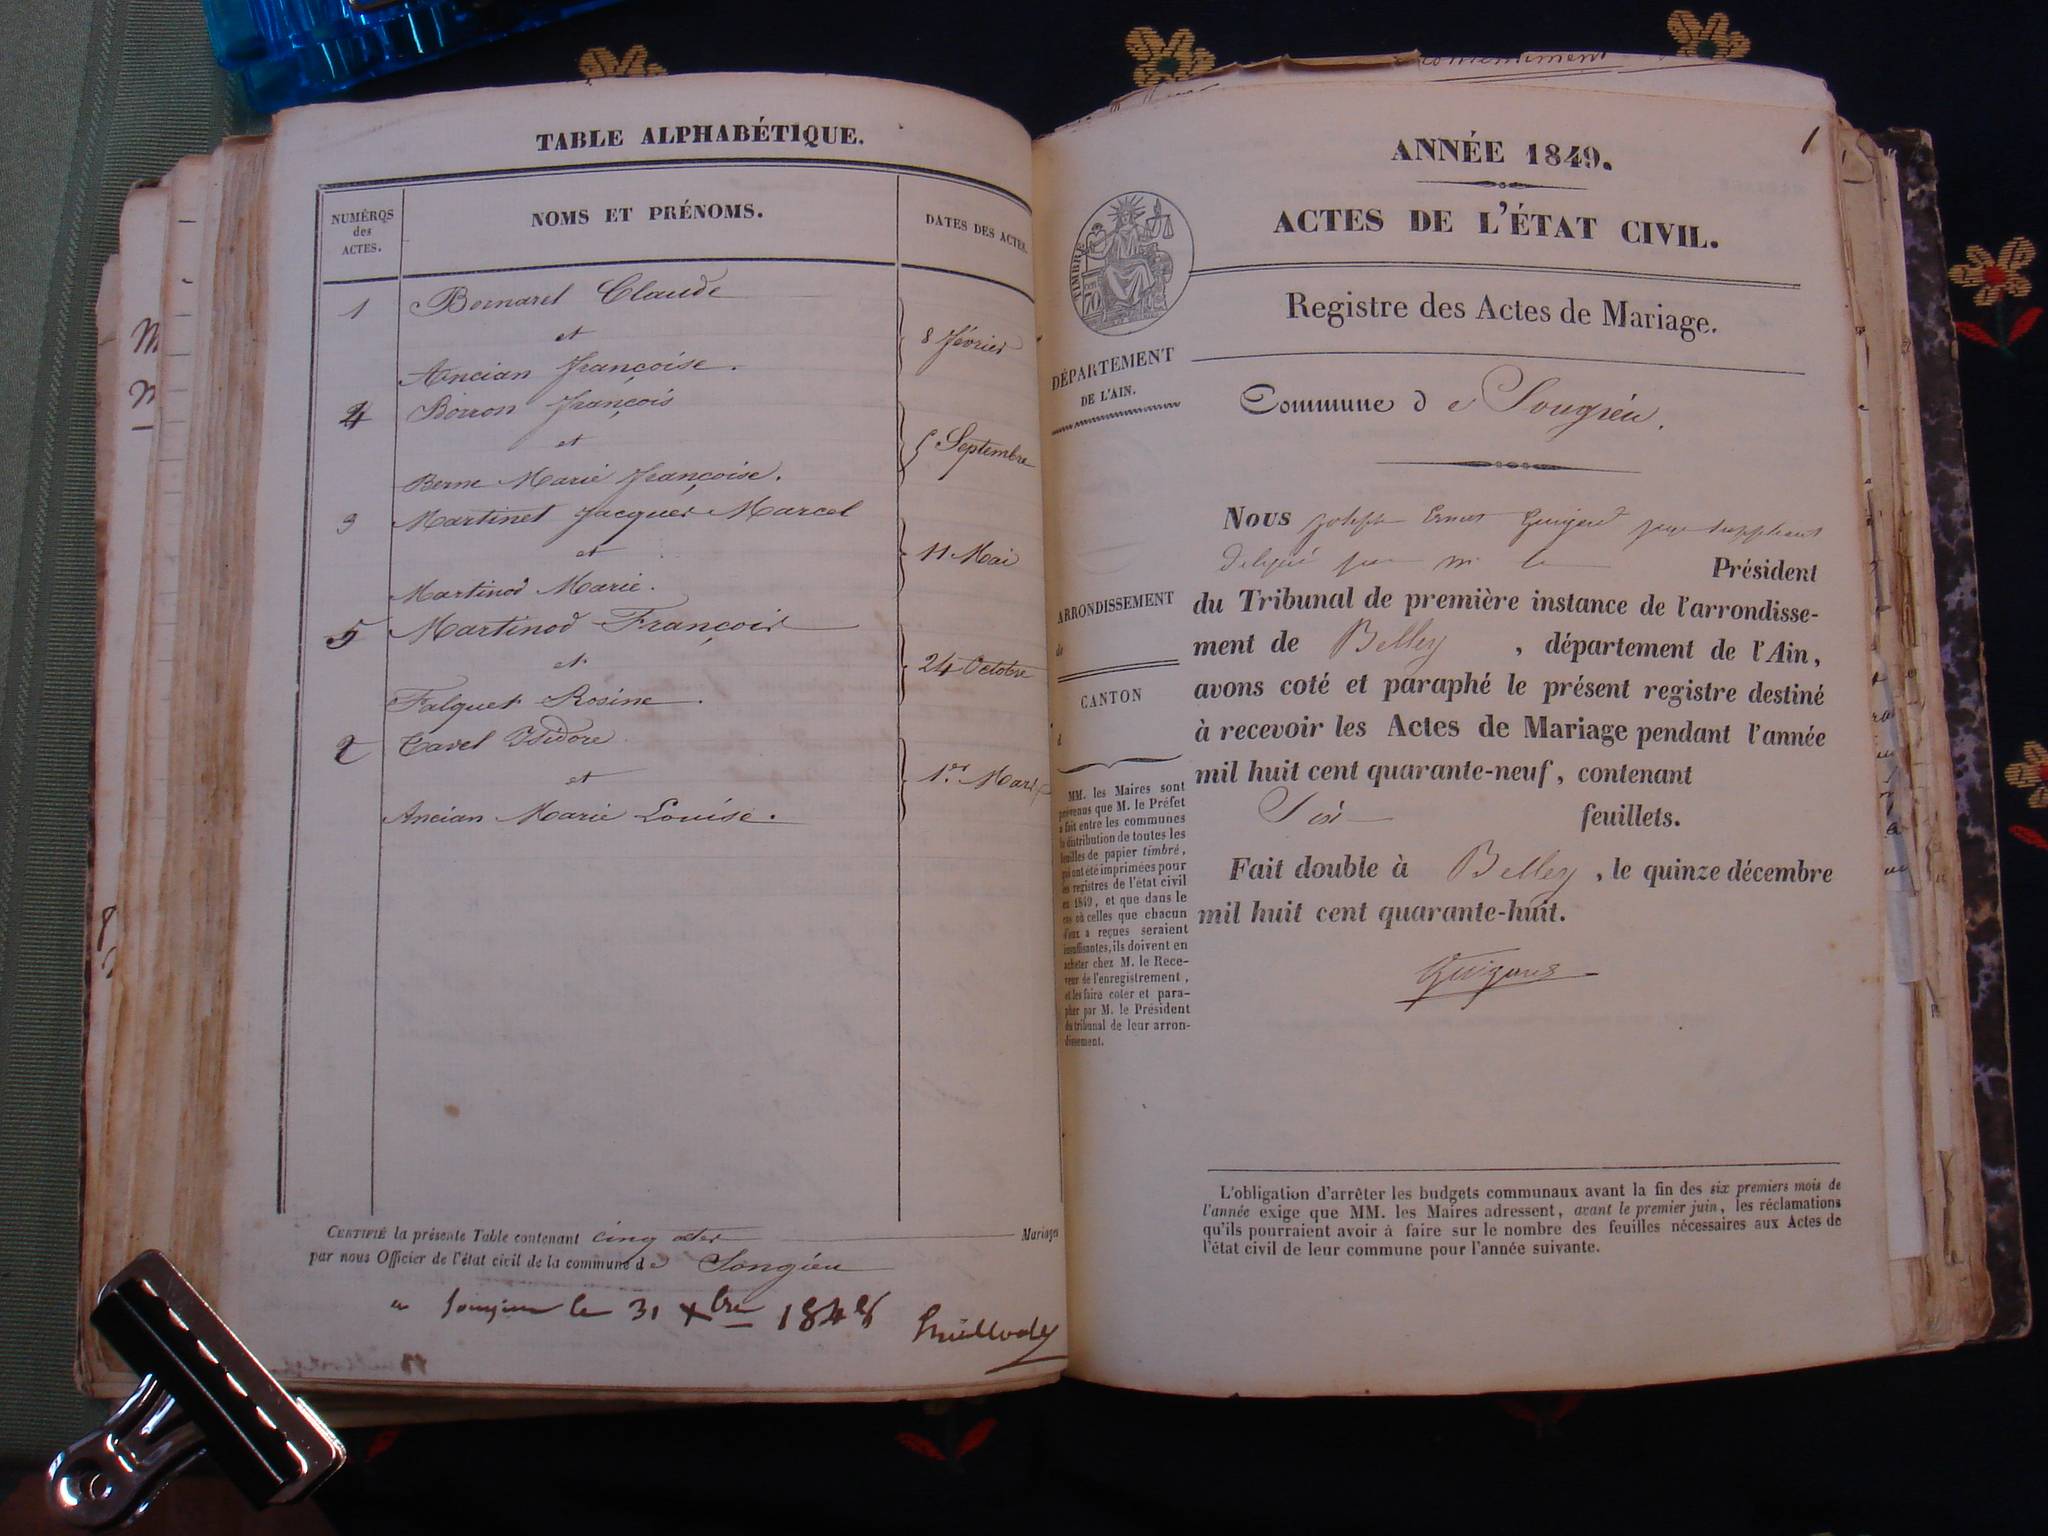 TABLE ALPHABÉTIQUE.
NUMÉROS
des
ACTES.
NOMS ET PRÉNOMS.
DATES DES ACTES.
1
Bornarel Claude
et
Ancian Françoise.
8 février
4
Borron François
et
Berne Marie Françoise.
5 Septembre
3
Martinet Jacques Marcel
et
Martinod Marie.
11 Mai
5
Martinod François
et
Falquet Rosine.
24 Octobre
2
Cavel Isidore
et
Ancian Marie Louise.
1.er Mars
CERTIFIÉ la présente Table contenant cinq actes Mariages
par nous Officier de l'état civil de la commune de Songieu
a Songieu le 31 Xbre 1848
1
ANNÉE 1849.
ACTES DE L'ÉTAT CIVIL.
TIMBRE
70
Registre des Actes de Mariage.
DÉPARTEMENT
DE L'AIN.
Commune de Songieu.
Nous Joseph Ernest juge suppléant
délégué par Mr le Président
ARRONDISSEMENT
de
CANTON
d
du Tribunal de première instance de l'arrondisse-
ment de Belley, département de l'Ain,
avons coté et paraphé le présent registre destiné
à recevoir les Actes de Mariage pendant l'année
mil huit cent quarante-neuf, contenant
Six feuillets.
Fait double à Belley, le quinze décembre
mil huit cent quarante-huit.
MM. les Maires sont
prévenus que M. le Préfet
a fait entre les communes
la distribution de toutes les
feuilles de papier timbré,
qui ont été imprimées pour
les registres de l'état civil
en 1849, et que dans le
cas où celles que chacun
d'eux a reçues seraient
insuffisantes, ils doivent en
acheter chez M. le Rece-
veur de l'enregistrement,
et les faire coter et para-
pher par M. le Président
du tribunal de leur arron-
dissement.
L'obligation d'arrêter les budgets communaux avant la fin des six premiers mois de
l'année exige que MM. les Maires adressent, avant le premier juin, les réclamations
qu'ils pourraient avoir à faire sur le nombre des feuilles nécessaires aux Actes de
l'état civil de leur commune pour l'année suivante.